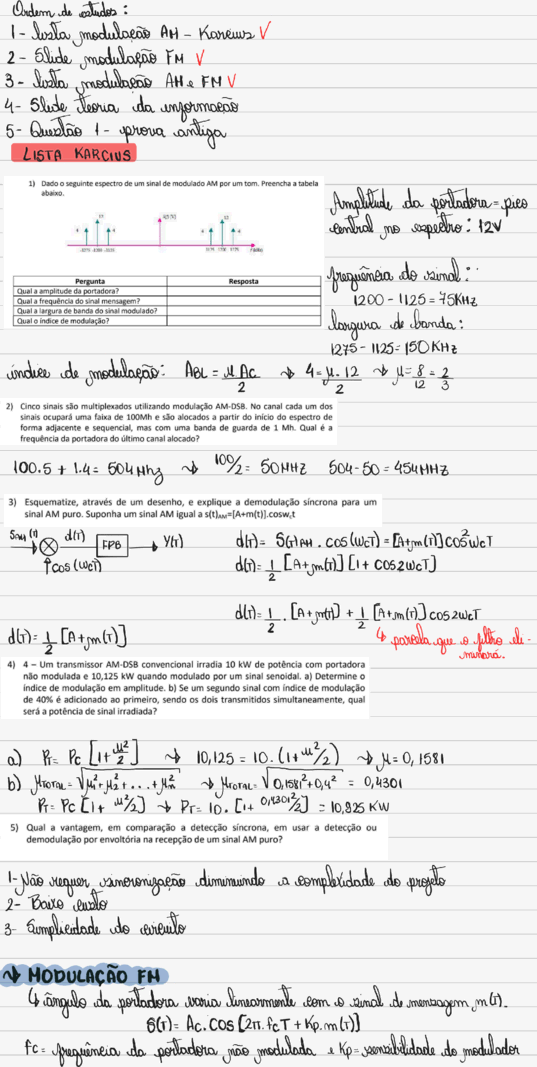 Ordem de estudos:
1- Lista modulação AM - Karcius V
2- Slide modulação FM V
3- Lista modulação AM e FM V
4- Slide teoria da informação
5- Questão 1 - prova antiga
LISTA KARCIUS
1) Dado o seguinte espectro de um sinal de modulado AM por um tom. Preencha a tabela
abaixo.
Pergunta Resposta
Qual a amplitude da portadora?
Qual a frequência do sinal mensagem?
Qual a largura de banda do sinal modulado?
Qual o índice de modulação?
Amplitude da portadora = pico
central no espectro: 12V
frequência do sinal:
1200 - 1125 = 75KHz
largura de banda:
1275 - 1125 = 150 KHz
índice de modulação: ABL = μ Ac/2 → 4 = μ.12/2 → μ = 8/12 = 2/3
2) Cinco sinais são multiplexados utilizando modulação AM-DSB. No canal cada um dos
sinais ocupará uma faixa de 100Mh e são alocados a partir do início do espectro de
forma adjacente e sequencial, mas com uma banda de guarda de 1 Mh. Qual é a
frequência da portadora do último canal alocado?
100.5 + 1.4 = 504 Mhz → 100/2 = 50MHz 504 - 50 = 454MHz
3) Esquematize, através de um desenho, e explique a demodulação síncrona para um
sinal AM puro. Suponha um sinal AM igual a s(t)AM=[A+m(t)].coswct
SAM(t) d(t) FPB y(t)
cos(wct)
d(t) = S(t)AM . cos(wct) = [A+m(t)]cos²wct
d(t) = 1/2 [A+m(t)][1 + cos2wct]
d(t) = 1/2 . [A+m(t)] + 1/2 [A+m(t)] cos2wct
↳ parcela que o filtro eli-
minará.
d(t) = 1/2 [A+m(t)]
4) 4 – Um transmissor AM-DSB convencional irradia 10 kW de potência com portadora
não modulada e 10,125 kW quando modulado por um sinal senoidal. a) Determine o
índice de modulação em amplitude. b) Se um segundo sinal com índice de modulação
de 40% é adicionado ao primeiro, sendo os dois transmitidos simultaneamente, qual
será a potência de sinal irradiada?
a) PT = Pc [1 + μ²/2] → 10,125 = 10.(1+μ²/2) → μ = 0,1581
b) μTOTAL = √μ₁²+μ₂²+...+μn² → μTOTAL = √0,1581²+0,4² = 0,4301
PT = Pc [1 + μ²/2] → PT = 10.[1+ 0,4301²/2] = 10,925 KW
5) Qual a vantagem, em comparação a detecção síncrona, em usar a detecção ou
demodulação por envoltória na recepção de um sinal AM puro?
1- Não requer sincronização diminuindo a complexidade do projeto
2- Baixo custo
3- Simplicidade do circuito
→ MODULAÇÃO FM
↳ ângulo da portadora varia linearmente com o sinal de mensagem, m(t).
S(t) = Ac.cos[2π.fct + Kp.m(t)]
fc = frequência da portadora não modulada e Kp = sensibilidade do modulador